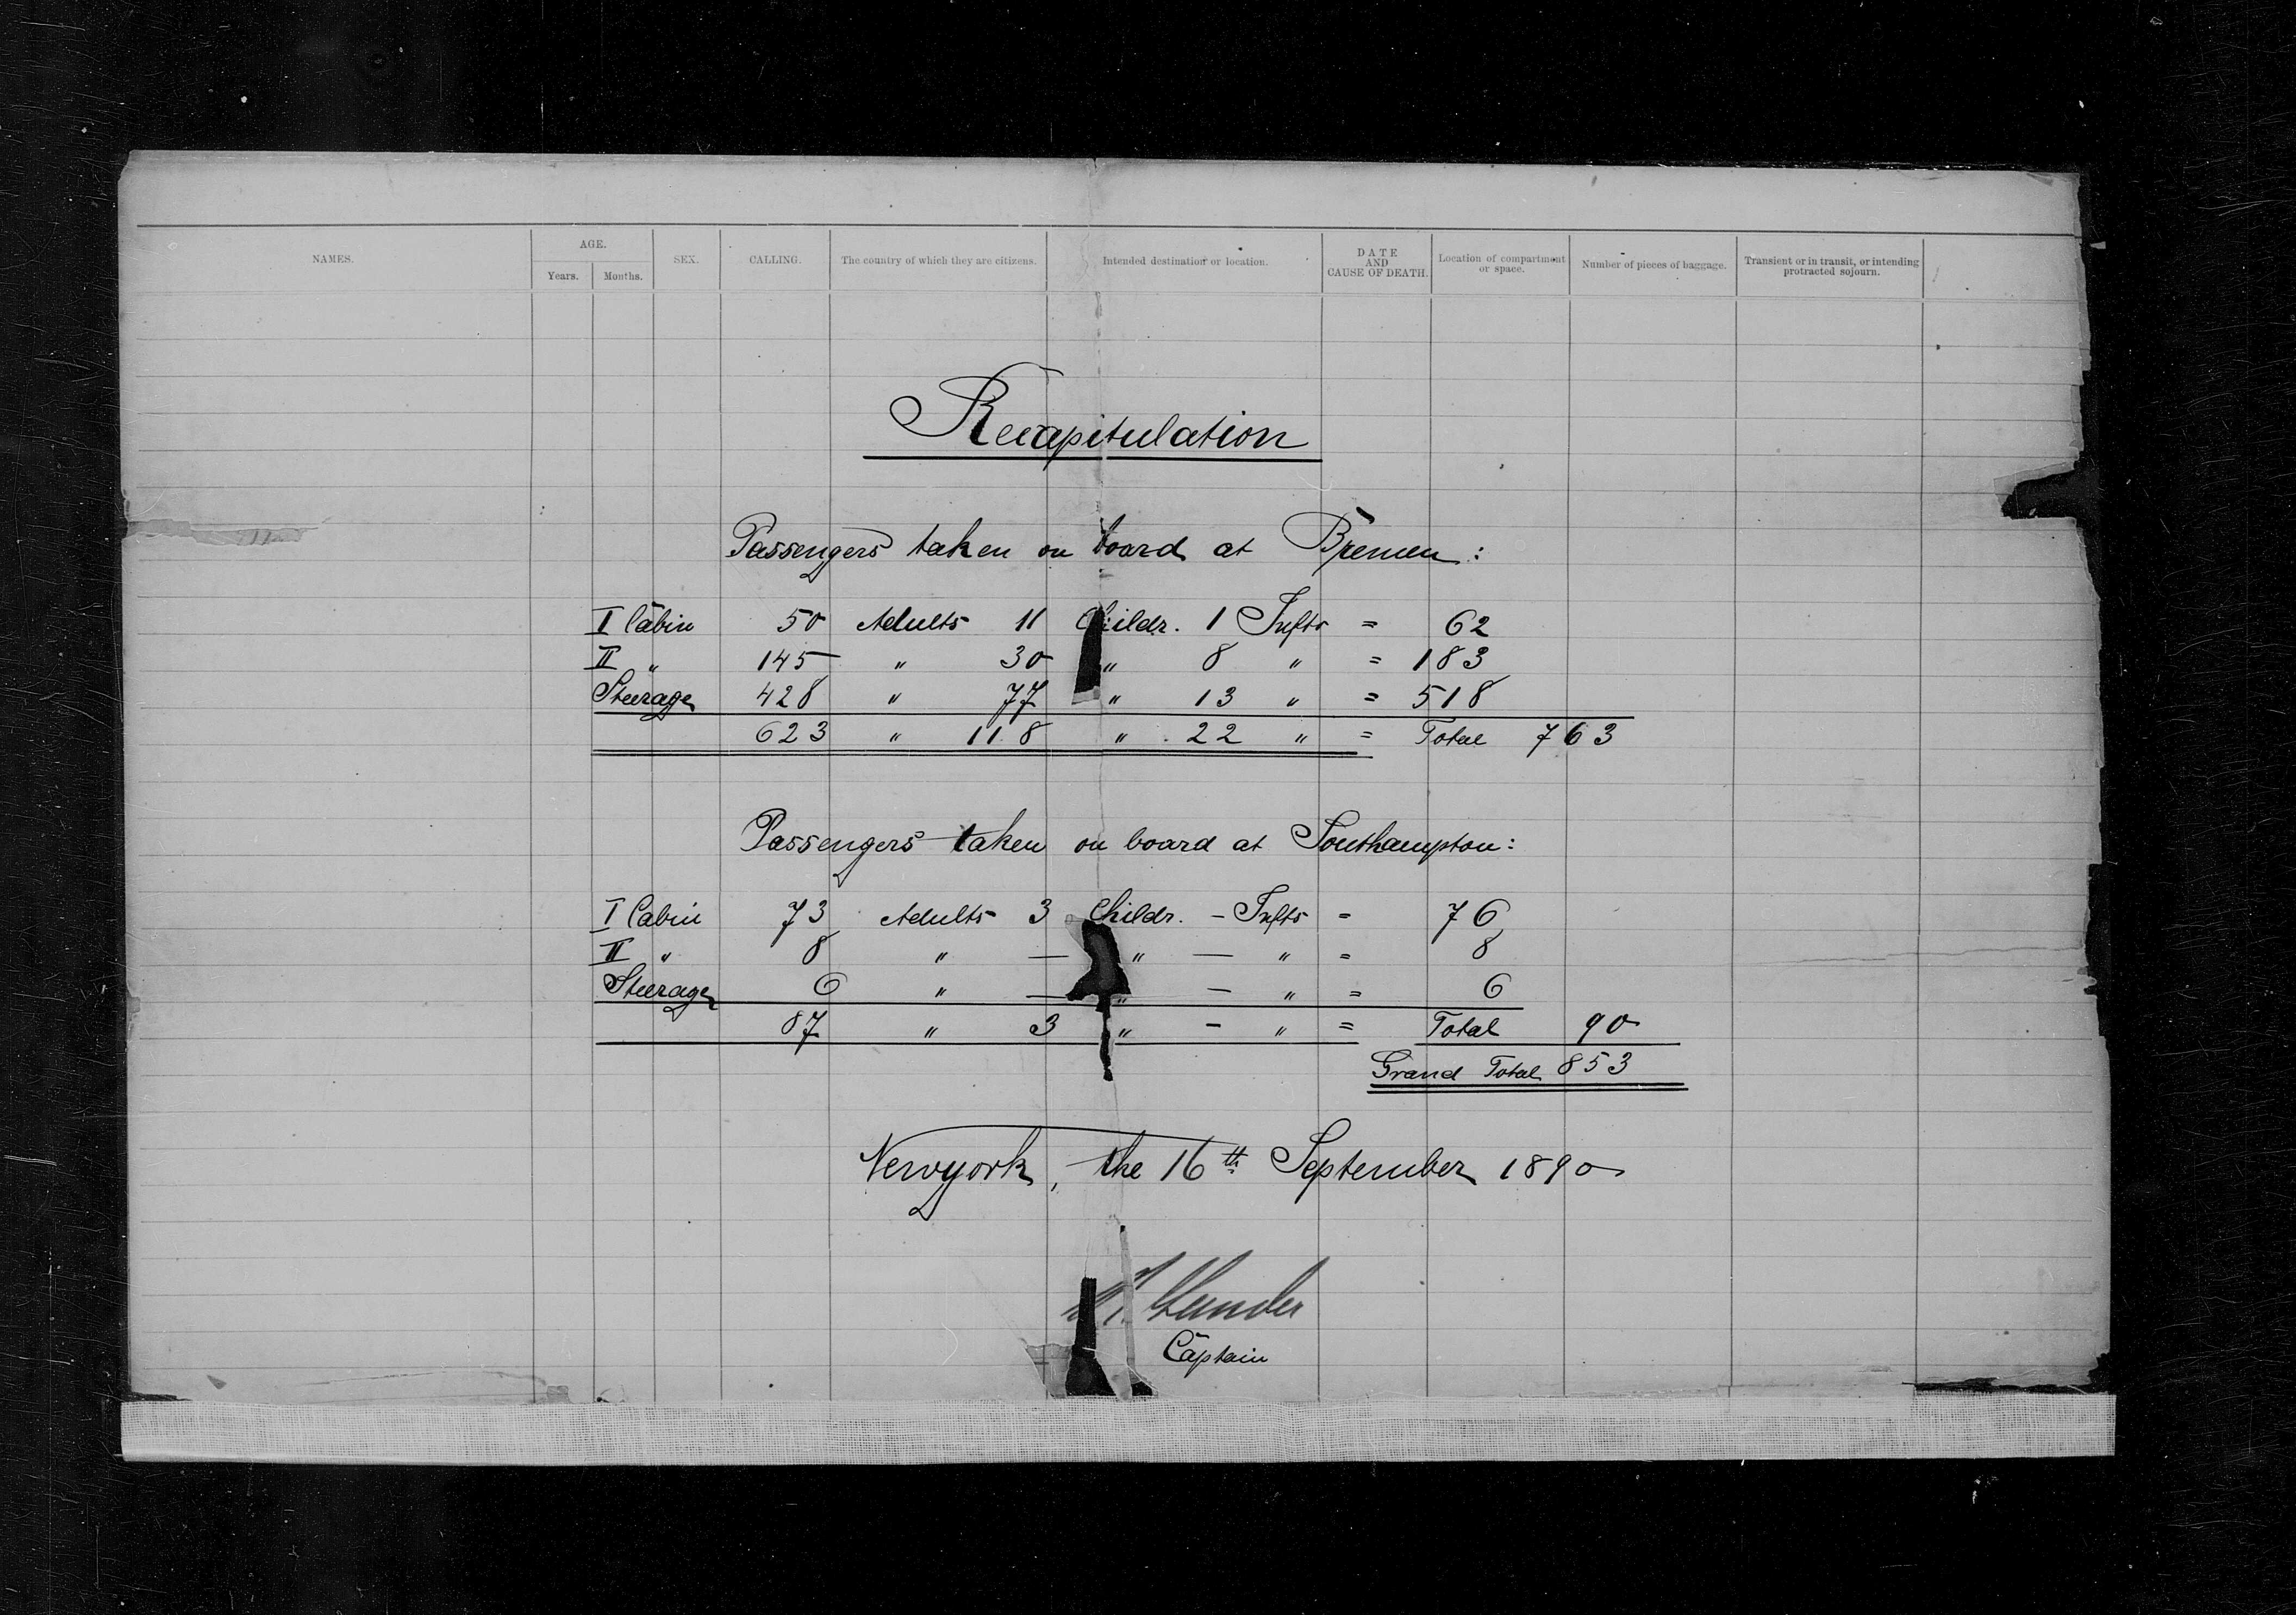 NAMES. AGE. SEX. CALLING. The country of which they are citizens. Intended destination or location. DATE AND CAUSE OF DEATH. Location of compartment or space. Number of pieces of baggage. Transient or in transit, or intending protracted sojourn.
Years. Months.
Recapitulation
Passengers taken on board at Bremen:
I Cabin 50 Adults 11 Childr. 1 Infts = 62
II " 145 " 30 " 8 " = 183
Steerage 428 " 77 " 13 " = 518
623 " 118 " 22 " = Total 763
Passengers taken on board at Southampton:
I Cabin 73 Adults 3 Childr. – Infts = 76
II " 8 " — " — " = 8
Steerage 6 " — " — " = 6
87 " 3 " – " = Total 90
Grand Total 853
Newyork, the 16th September 1890
Captain